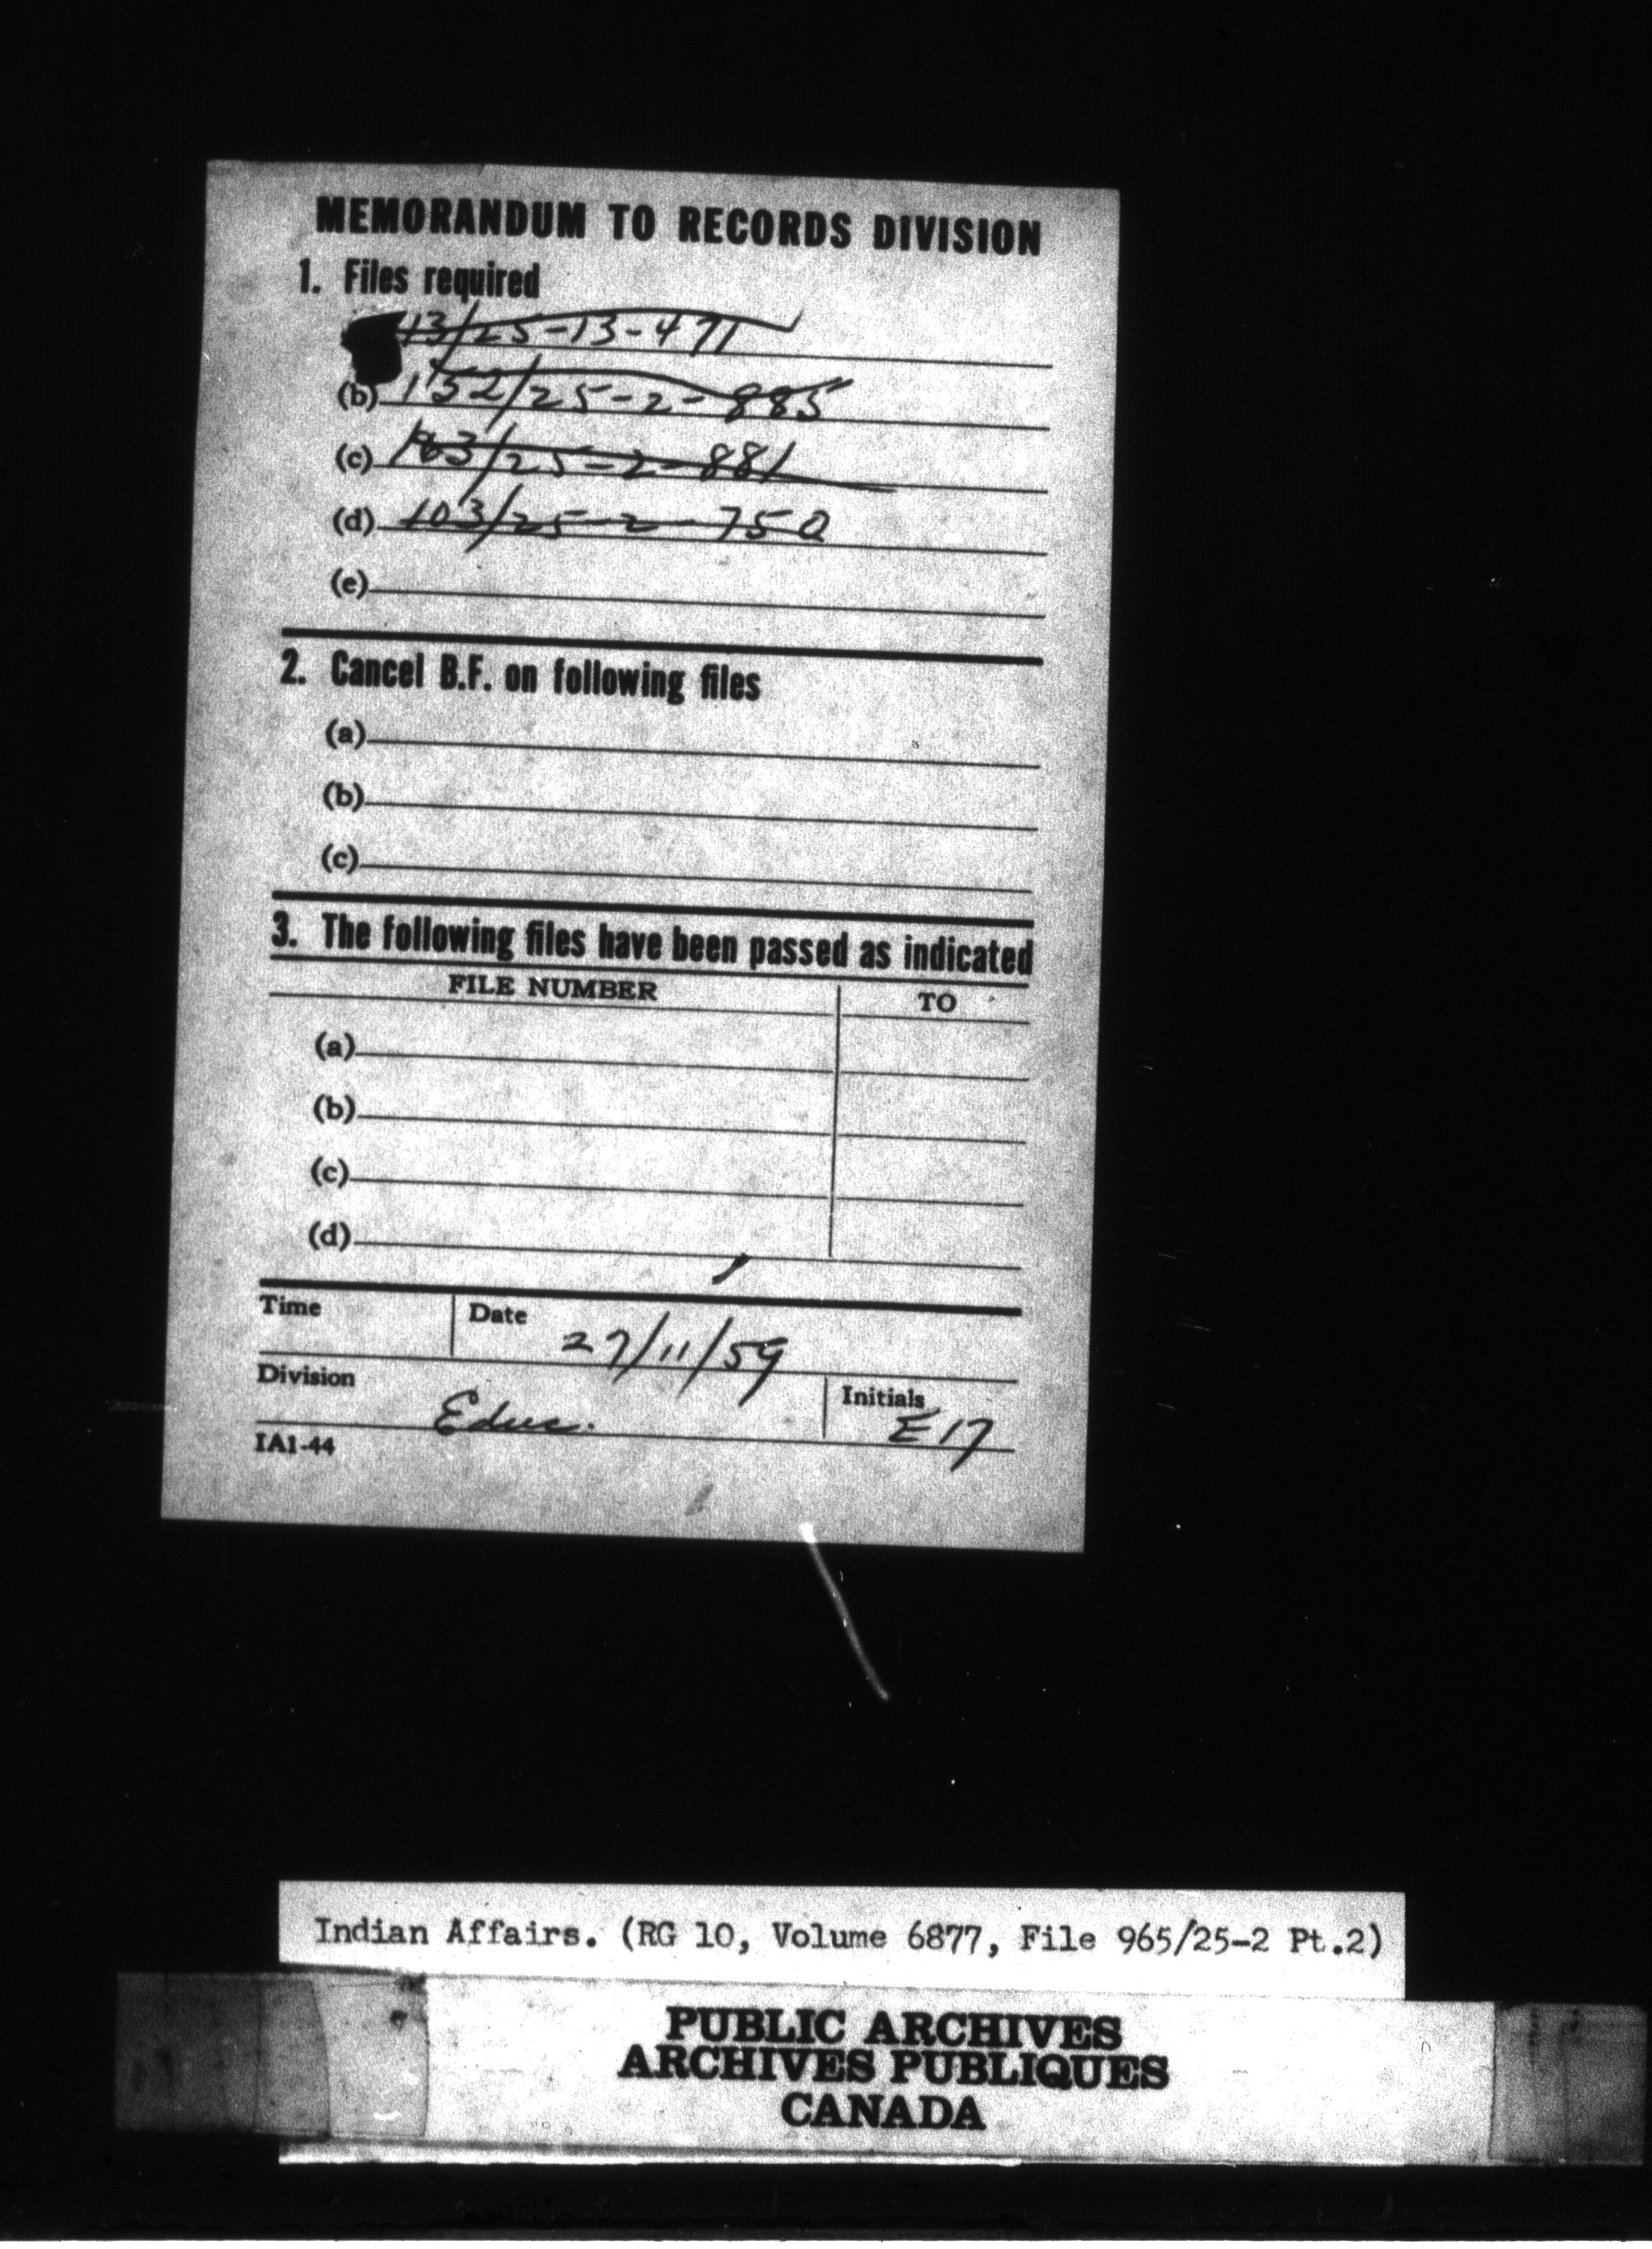 MEMORANDUM TO RECORDS DIVISION
1. Files required
13/25-13-471
(b) 132/25-2-885
(c) 163/25-2-881
(d) 103/25-2-750
(e)
2. Cancel B.F. on following files
(a)
(b)
(c)
3. The following files have been passed as indicated
FILE NUMBER TO
(a)
(b)
(c)
(d)
Time Date 27/11/59
Division Educ. Initials E17
IA1-44
Indian Affairs. (RG 10, Volume 6877, File 965/25-2 Pt.2)
PUBLIC ARCHIVES
ARCHIVES PUBLIQUES
CANADA